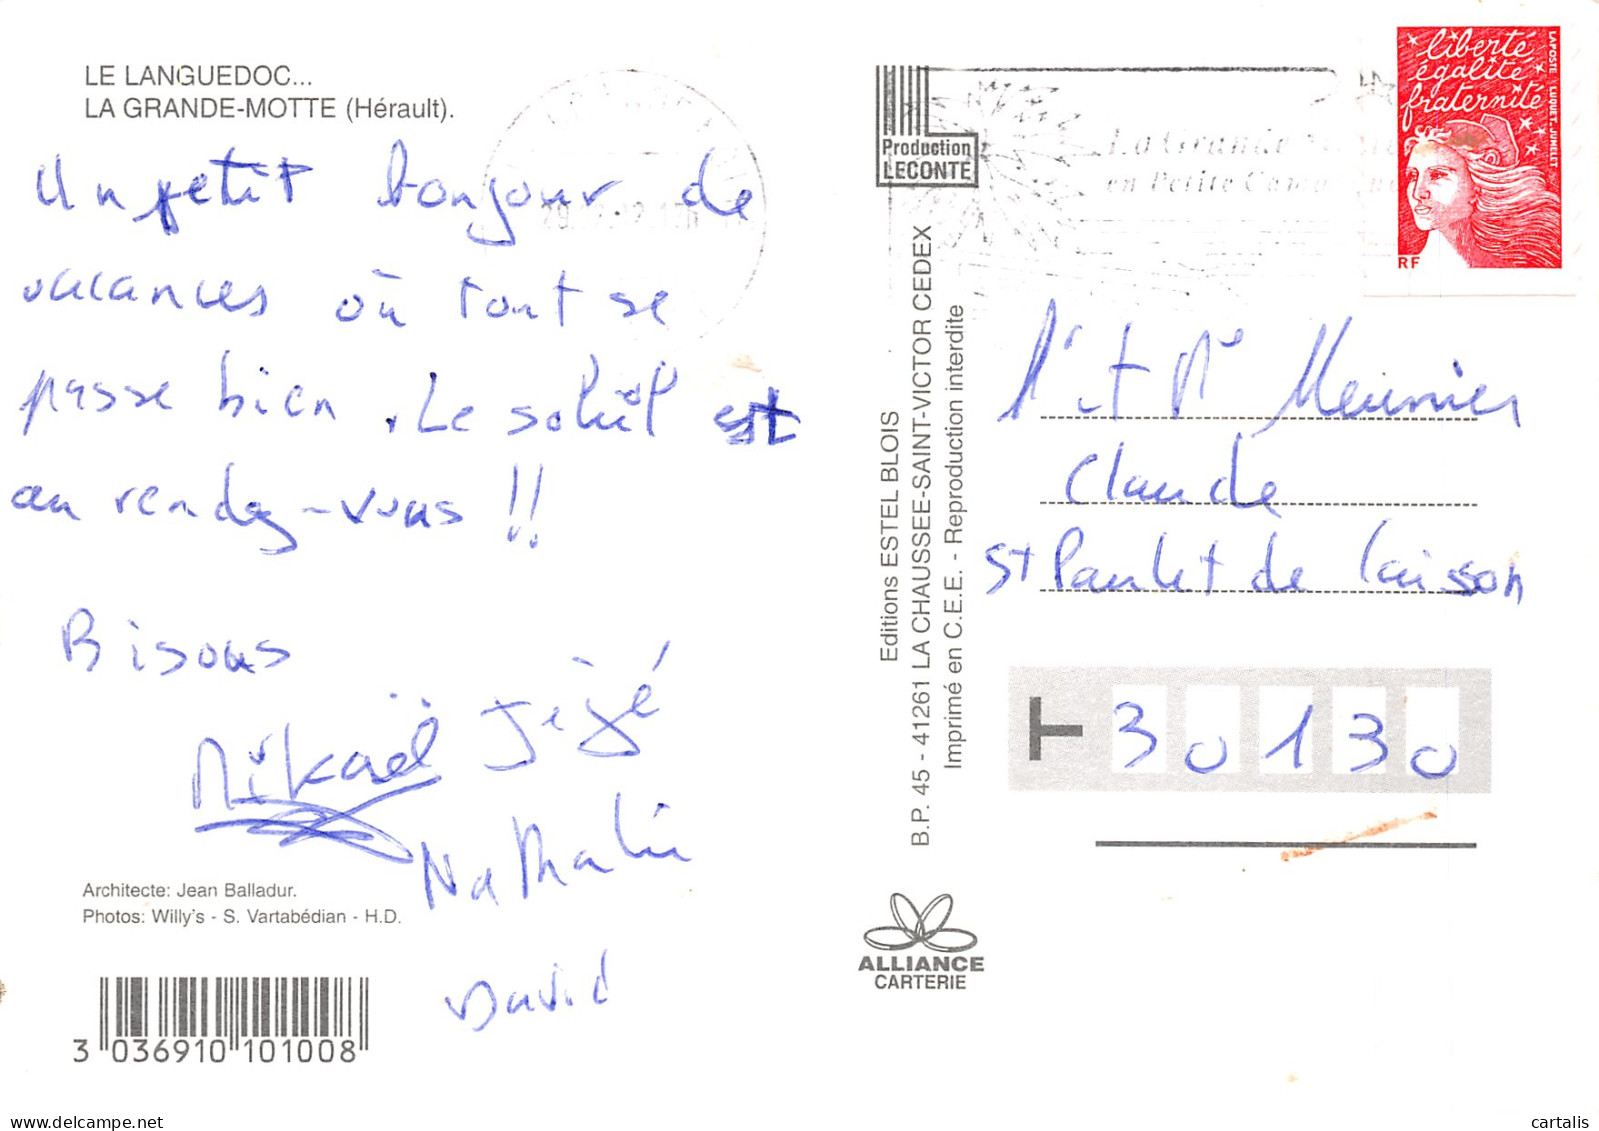 LE LANGUEDOC...
LA GRANDE-MOTTE (Hérault).
Un petit bonjour de
vacances où tout se
passe bien. Le soleil est
au rendez-vous !!
Bisous
Mikaël Jégé
Nathalie
David
Architecte: Jean Balladur.
Photos: Willy's - S. Vartabédian - H.D.
3 036910 101008
Production
LECONTE
Editions ESTEL BLOIS
B.P. 45 - 41261 LA CHAUSSEE-SAINT-VICTOR CEDEX
Imprimé en C.E.E. - Reproduction interdite
ALLIANCE
CARTERIE
La Grande
en Petite
liberté
égalité
fraternité
RF
LAPOSTE LUQUET.JUMELET
Meunier
Claude
St Paulet de Caisson
30130
cartalis